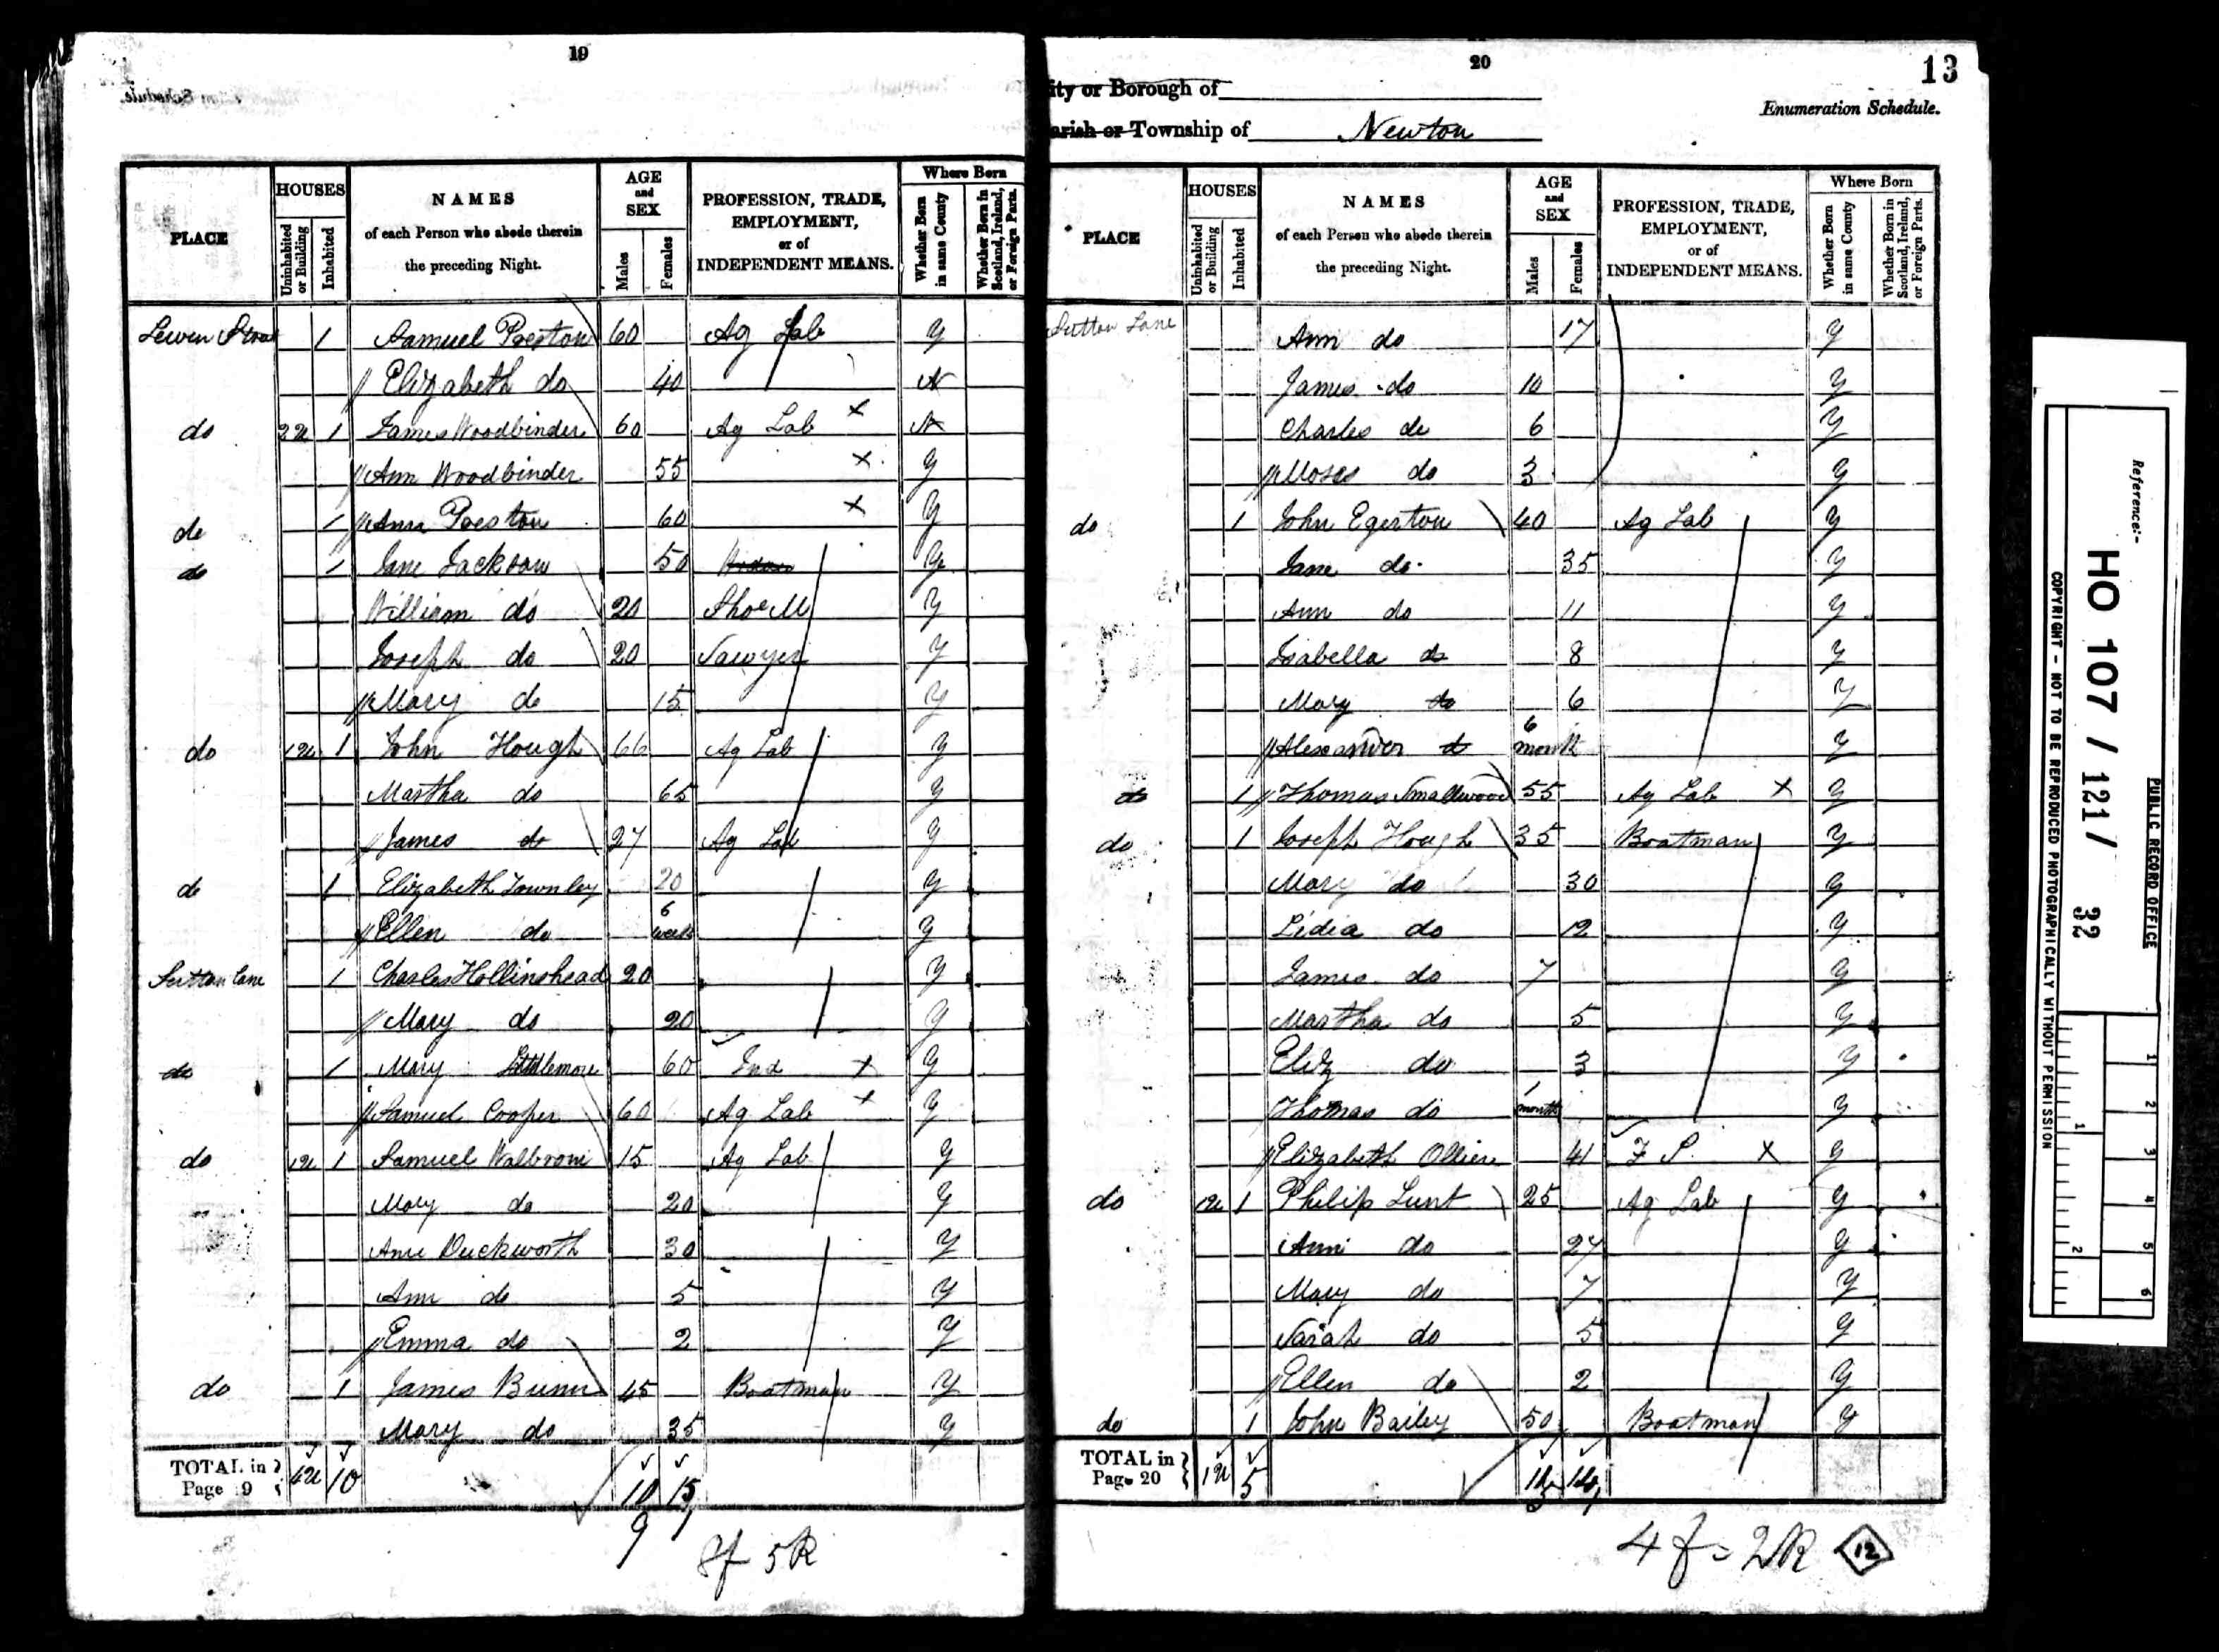 19
TOTAL in Page 19
PLACE HOUSES Uninhabited or Building Inhabited NAMES of each Person who abode therein the preceding Night. AGE and SEX Males Females PROFESSION, TRADE, EMPLOYMENT, or of INDEPENDENT MEANS. Where Born Whether Born in same County Whether Born in Scotland, Ireland, or Foreign Parts.
1 Samuel Preston 60 Ag Lab y
Elizabeth do 40 N
do 2u 1 James Woodbinder 60 Ag Lab x N
Ann Woodbinder 55 x y
do 1 Ann Preston 60 x y
do 1 Jane Jackson 50 y
William do 20 Shoe M y
Joseph do 20 Sawyer y
Mary do 15 y
do 1u 1 John Hough 66 Ag Lab y
Martha do 65 y
James do 27 Ag Lab y
do 1 Elizabeth Townley 20 y
Ellen do 6 weeks y
Sutton Lane 1 Charles Hollinshead 20 y
Mary do 20 y
do 1 Mary Littlemore 60 Ind x y
Samuel Cooper 60 Ag Lab x y
do 1u 1 Samuel 15 Ag Lab y
Mary do 20 y
Ann Duckworth 30 y
Ann do 5 y
Emma do 2 y
do 1 James Bunn 45 Boatman y
Mary do 35 y
4u 10 10 15
9
8f 5R
20
13
ity or Borough of
arish or Township of Newton
Enumeration Schedule.
PLACE HOUSES Uninhabited or Building Inhabited NAMES of each Person who abode therein the preceding Night. AGE and SEX Males Females PROFESSION, TRADE, EMPLOYMENT, or of INDEPENDENT MEANS. Where Born Whether Born in same County Whether Born in Scotland, Ireland, or Foreign Parts.
Sutton Lane Ann do 17 y
James do 10 y
Charles do 6 y
Moses do 3 y
do 1 John Egerton 40 Ag Lab y
Jane do 35 y
Ann do 11 y
Isabella do 8 y
Mary do 6 y
Alexander do 6 month y
do 1 Thomas Smallwood 55 Ag Lab x y
do 1 Joseph Hough 35 Boatman y
Mary do 30 y
Lidia do 12 y
James do 7 y
Martha do 5 y
Eliz do 3 y
Thomas do 1 month y
Elizabeth Ollier 41 F S. x y
do 1u 1 Philip Lunt 25 Ag Lab y
Ann do 27 y
Mary do 7 y
Sarah do 5 y
Ellen do 2 y
do 1 John Bailey 50 Boatman y
TOTAL in Page 20 1u 5 14
4f = 2R 12
Reference:-
HO 107 / 121 / 32
PUBLIC RECORD OFFICE
COPYRIGHT - NOT TO BE REPRODUCED PHOTOGRAPHICALLY WITHOUT PERMISSION
1 2 3 4 5 6
1 2